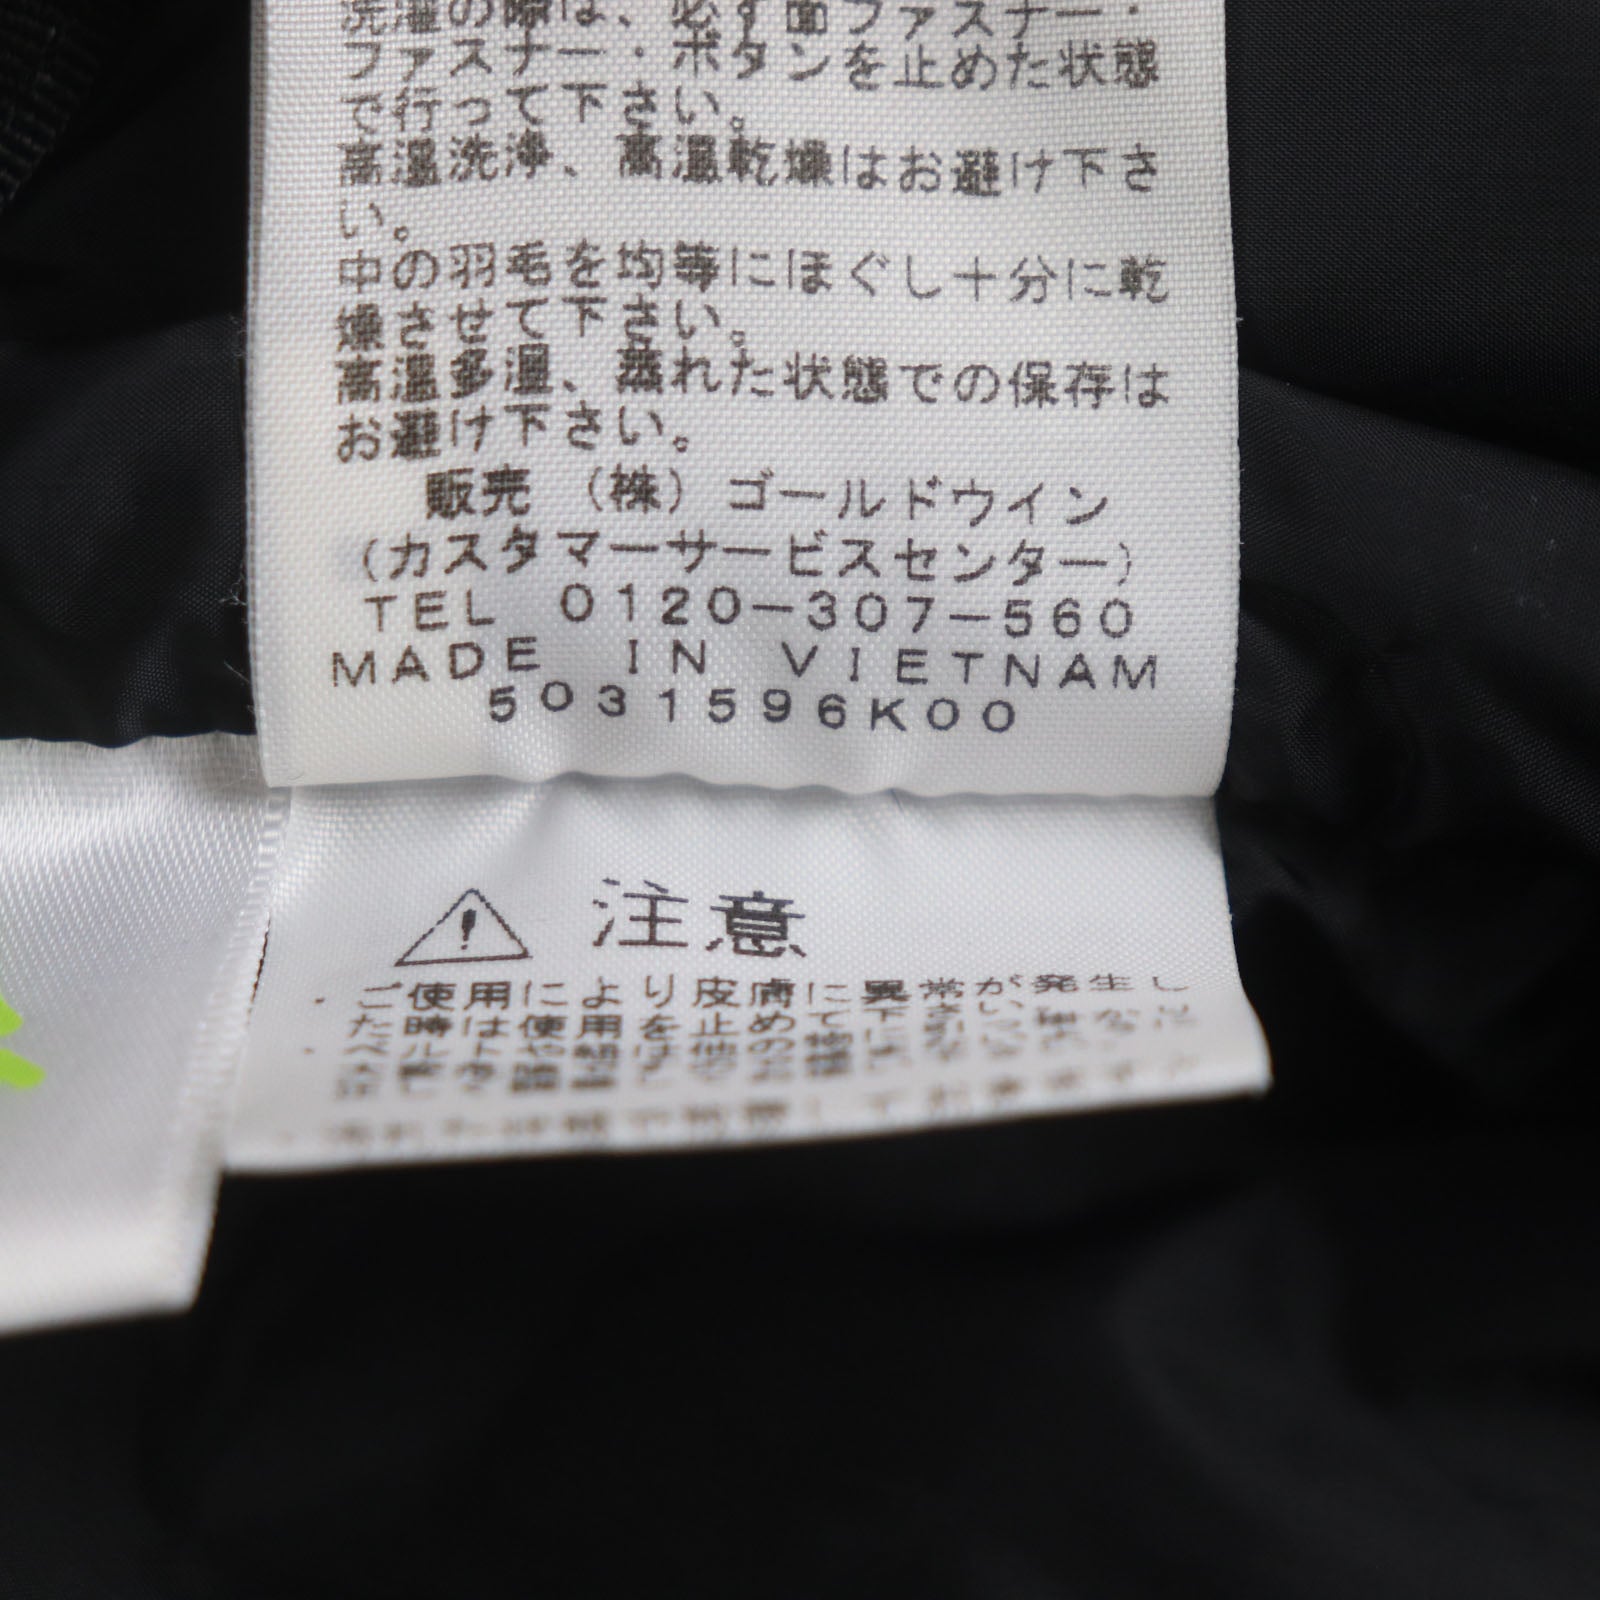 洗濯の際は、必ず面ファスナー・
ファスナー・ボタンを止めた状態
で行って下さい。
高温洗浄、高温乾燥はお避け下さ
い。
中の羽毛を均等にほぐし十分に乾
燥させて下さい。
高温多湿、蒸れた状態での保存は
お避け下さい。
販売 (株)ゴールドウイン
(カスタマーサービスセンター)
TEL 0120-307-560
MADE IN VIETNAM
5031596K00
注意
・ご使用により皮膚に異常が発生し
た時は使用を止めて下さい